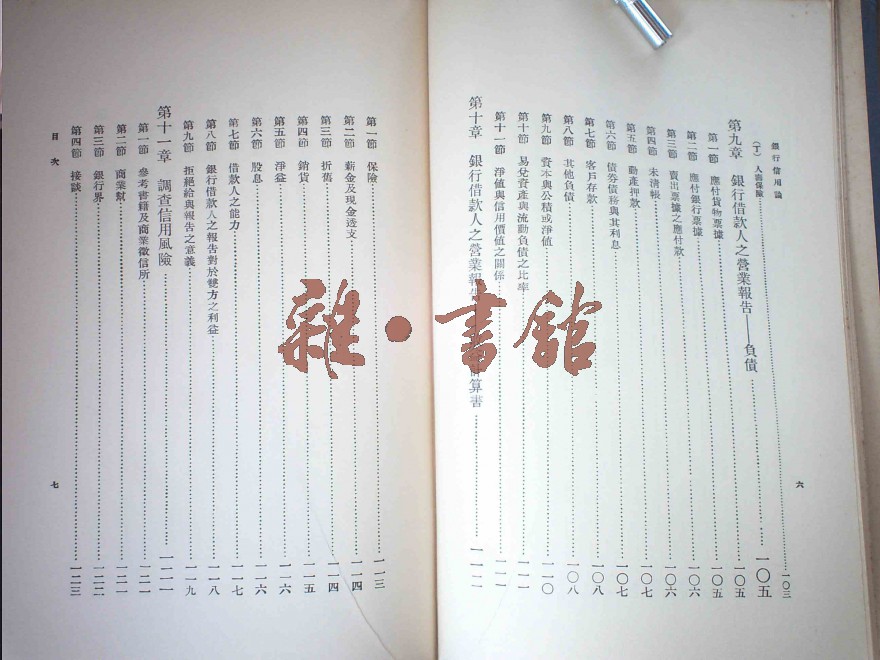 銀行信用論
六
(丁) 人壽保險 一〇三
第九章 銀行借款人之營業報告——負債 一〇五
第一節 應付貨物票據 一〇五
第二節 應付銀行票據 一〇六
第三節 賣出票據之應付款 一〇六
第四節 未清帳 一〇七
第五節 動產押款 一〇七
第六節 債券債務與其利息 一〇七
第七節 客戶存款 一〇八
第八節 其他負債 一〇八
第九節 資本與公積或淨值 一一〇
第十節 易兌資產與流動負債之比率 一一一
第十一節 淨值與信用價值之關係 一一一
第十章 銀行借款人之營業報告 計算書 一一二
第一節 保險 一一三
第二節 薪金及現金透支 一一四
第三節 折舊 一一四
第四節 銷貨 一一五
第五節 淨益 一一六
第六節 股息 一一六
第七節 借款人之能力 一一七
第八節 銀行借款人之報告對於雙方之利益 一一八
第九節 拒絕給與報告之意義 一一九
第十一章 調查信用風險 一二一
第一節 參考書籍及商業徵信所 一二一
第二節 商業幫 一二一
第三節 銀行界 一二二
第四節 接談 一二三
目次
七
雜·書館